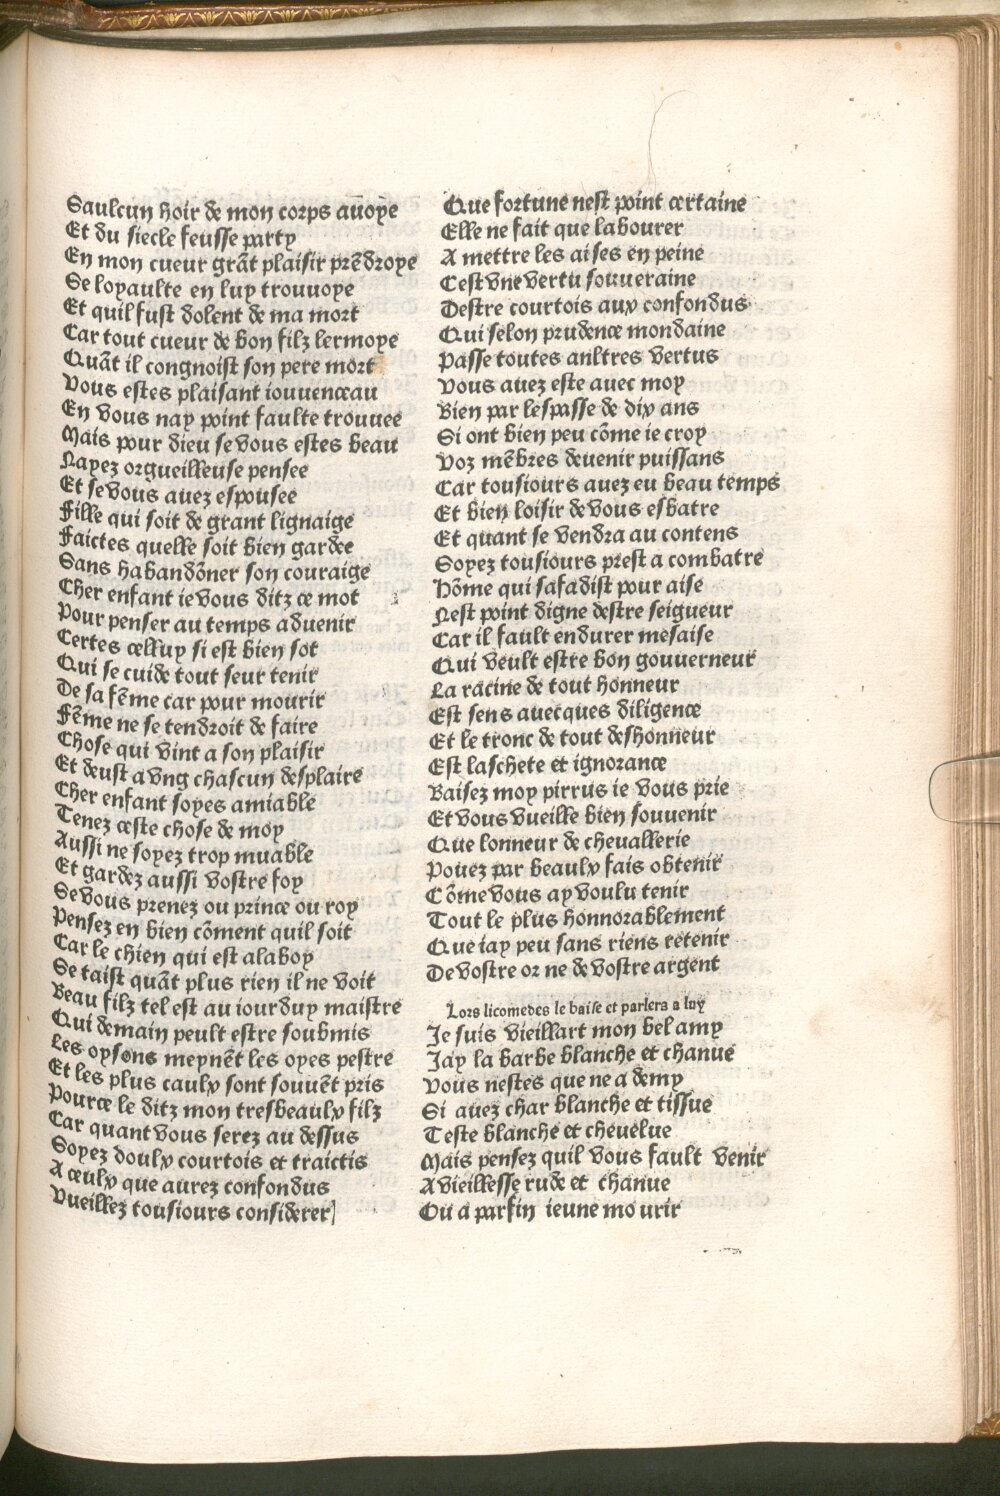 Saulcun hoir de mon corps auoye
Et du siecle feusse party
En mon cueur grāt plaisir prēdroye
Se loyaulte en luy trouuoye
Et quil fust dolent de ma mort
Car tout cueur de bon filz lermoye
Quāt il congnoist son pere mort
Vous estes plaisant iouuenceau
En vous nay point faulte trouuee
Mais pour dieu se vous estes beau
Nayez orgueilleuse pensee
Et se vous auez espousee
Fille qui soit de grant lignaige
Faictes quelle soit bien gardee
Sans habandōner son couraige
Cher enfant ie vous ditz ce mot
Pour penser au temps aduenir
Certes celluy si est bien sot
Qui se cuide tout seur tenir
De sa fēme car pour mourir
Fēme ne se tendroit de faire
Chose qui vint a son plaisir
Et deust a vng chascun desplaire
Cher enfant soyes amiable
Tenez ceste chose de moy
Aussi ne soyez trop muable
Et gardez aussi vostre foy
Se vous prenez ou prince ou roy
Pensez en bien cōment quil soit
Car le chien qui est alaboy
Se taist quāt plus rien il ne voit
Beau filz tel est au iourduy maistre
Qui demain peult estre soubmis
Les oysons meynēt les oyes pestre
Et les plus caulx sont souuēt pris
Pource le ditz mon tresbeaulx filz
Car quant vous serez au dessus
Soyez doulx courtois et traictis
A ceulx que aurez confondus
Vueillez tousiours considerer
Que fortune nest point certaine
Elle ne fait que labourer
A mettre les aises en peine
Cest vne vertu souueraine
Destre courtois aux confondus
Qui selon prudence mondaine
Passe toutes anltres vertus
Vous auez este auec moy
Bien par lespasse de dix ans
Si ont bien peu cōme ie croy
Voz mēbres deuenir puissans
Car tousiours auez eu beau temps
Et bien loisir de vous esbatre
Et quant se vendra au contens
Soyez tousiours prest a combatre
Hōme qui safadist pour aise
Nest point digne destre seigueur
Car il fault endurer mesaise
Qui veult estre bon gouuerneur
La racine de tout honneur
Est sens auecques diligence
Et le tronc de tout deshonneur
Est laschete et ignorance
Baisez moy pirrus ie vous prie
Et vous vueille bien souuenir
Que lonneur de cheuallerie
Pouez par beaulx fais obtenir
Cōme vous ay voulu tenir
Tout le plus honnorablement
Que iay peu sans riens retenir
De vostre or ne de vostre argent
Lors licomedes le baise et parlera a luy
Je suis vieillart mon bel amy
Jay la barbe blanche et chanue
Vous nestes que ne a demy
Si auez char blanche et tissue
Teste blanche et cheuelue
Mais pensez quil vous fault venir
A vieillesse rude et chanue
Ou a parfin ieune mourir